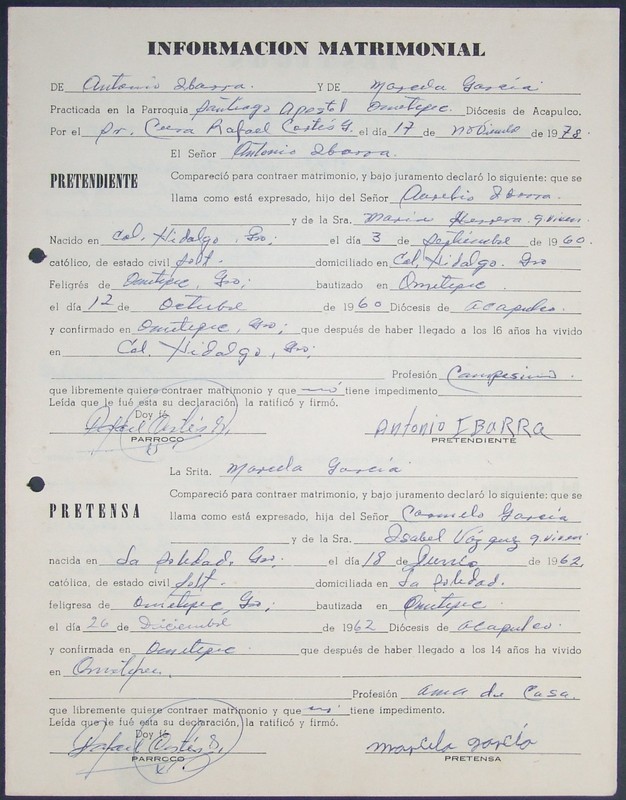 INFORMACION MATRIMONIAL
DE Antonio Ibarra. Y DE Marcela García
Practicada en la Parroquia Santiago Apostol Ometepec. Diócesis de Acapulco.
Por el Sr. Cura Rafael Cortés G. el día 17 de noviembre de 1978.
El Señor Antonio Ibarra.
Compareció para contraer matrimonio, y bajo juramento declaró lo siguiente: que se
PRETENDIENTE
llama como está expresado, hijo del Señor Aurelio Ibarra.
y de la Sra. Maria Herrera q. viven.
Nacido en Col. Hidalgo, Gro; el día 3 de septiembre de 1960.
católico, de estado civil solt. domiciliado en Col. Hidalgo. Gro
Feligrés de Ometepec, Gro; bautizado en Ometepec.
el día 12 de Octubre de 1960 Diócesis de Acapulco.
y confirmado en Ometepec, Gro; que después de haber llegado a los 16 años ha vivido
en Col. Hidalgo, Gro;
Profesión Campesino.
que libremente quiere contraer matrimonio y que no tiene impedimento
Leída que le fué esta su declaración, la ratificó y firmó.
Doy fé.
Rafael Cortés G. Antonio IBARRA
PARROCO PRETENDIENTE
La Srita. Marcela García
Compareció para contraer matrimonio, y bajo juramento declaró lo siguiente: que se
PRETENSA
llama como está expresado, hija del Señor Carmelo García
y de la Sra. Isabel Vázquez q. viven
nacida en La Soledad, Gro; el día 18 de Junio de 1962,
católica, de estado civil solt. domiciliada en La Soledad.
feligresa de Ometepec, Gro; bautizada en Ometepec.
el día 26 de Diciembre de 1962 Diócesis de Acapulco.
y confirmada en Ometepec que después de haber llegado a los 14 años ha vivido
en Ometepec.
Profesión ama de Casa.
que libremente quiere contraer matrimonio y que no tiene impedimento.
Leída que le fué esta su declaración, la ratificó y firmó.
Doy fé.
Rafael Cortés G. Marcela García
PARROCO PRETENSA